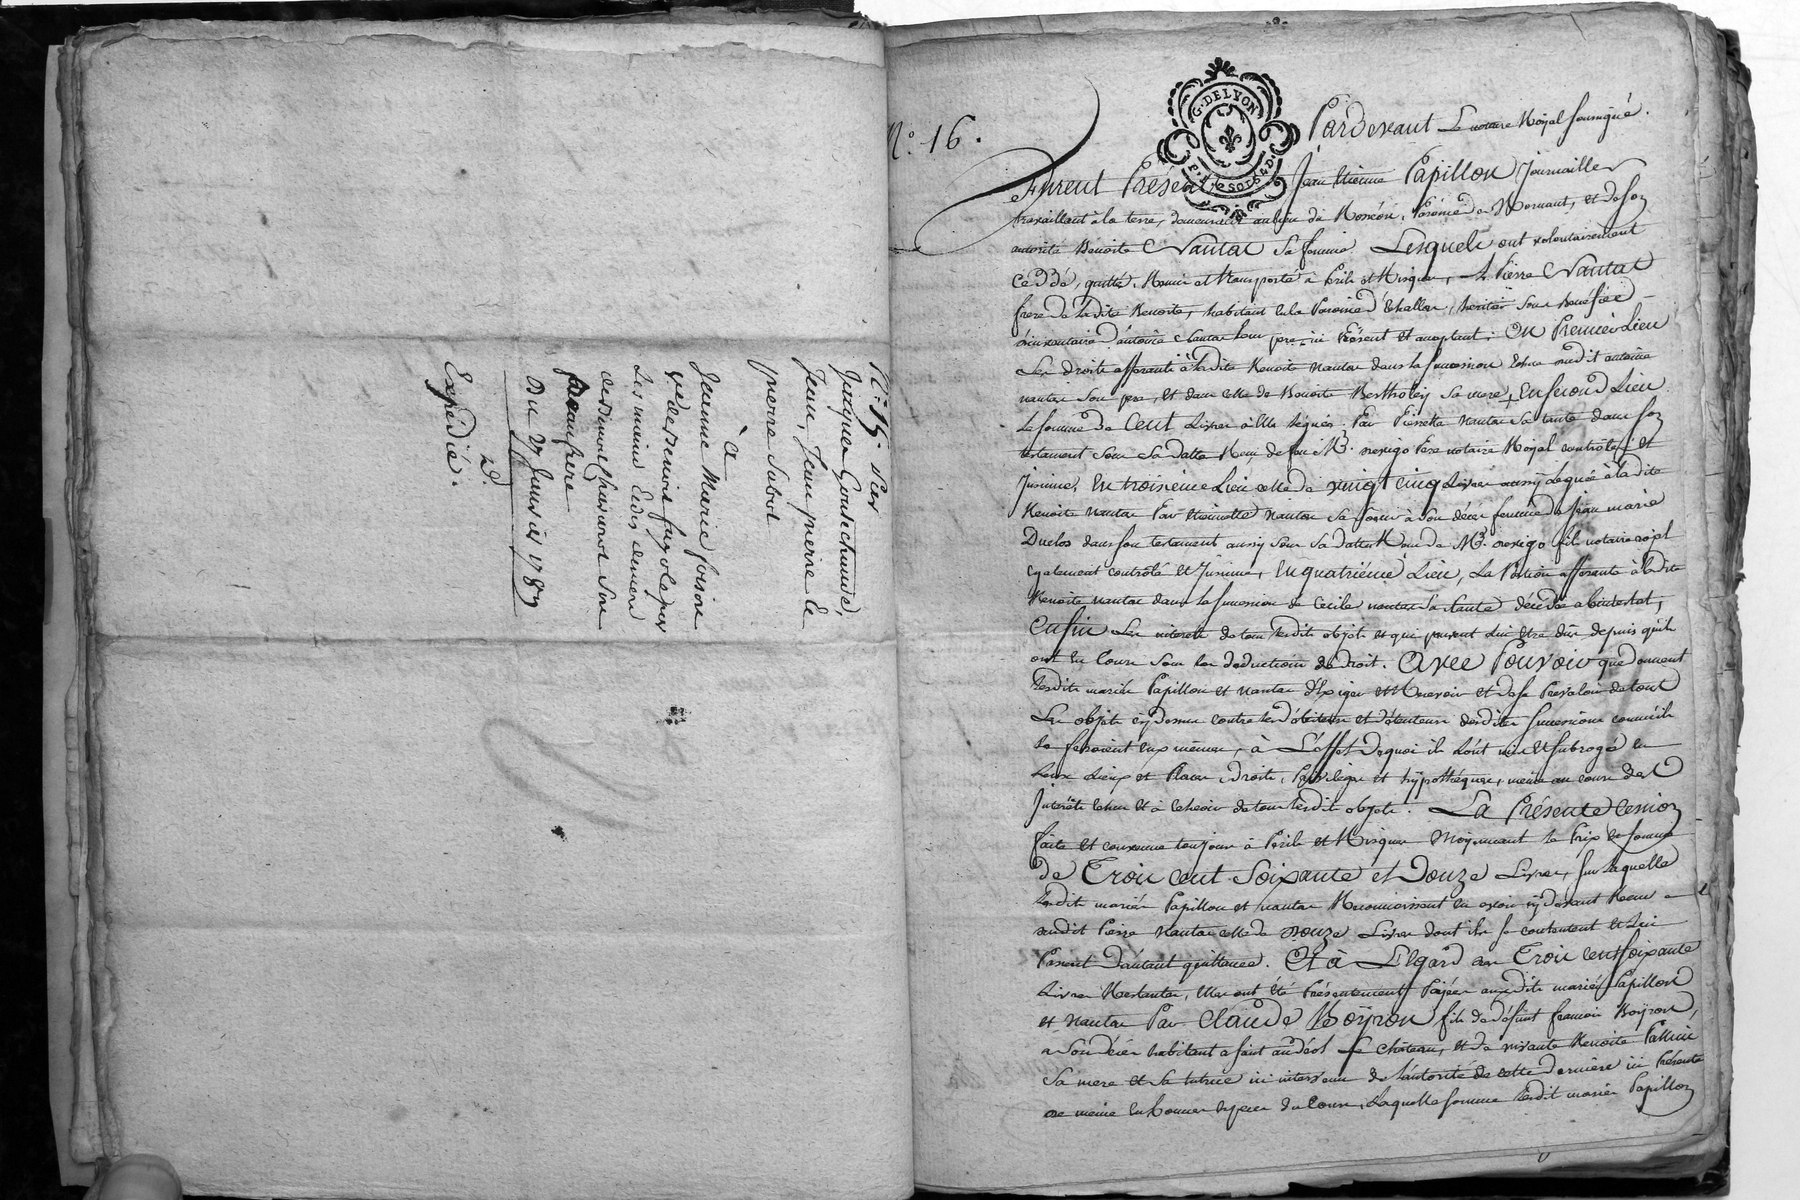 N.° 15. vies
Jacques Goutechaude,
Jean, Jean pierre et
pierre Subot
à
Jeanne Marie
ve de
Les
de son
Beaufrere
Du 27 Janvier 1787
2d.
Expédié.
N.° 16.
G. DE LYON
Pardevant Le notaire Royal soussigné.
Furent Présents Jean Etienne Papillon Journaillier
travaillant à la terre, demeurant au lieu de Paroisse de Mornant, et de son
autorité Benoite Nantas Sa femme Lesquels ont volontairement
Céddé, quitté, Remis et transporté à Perils et Risques, A Pierre Nantas
frere de ladite Benoite, habitant en la Paroisse d'Echallas, héritier sous Bénéfice
d'inventaire d'antoine Nantas Leur pere, ici Présent et acceptant; En Premier Lieu
Les droits afferants à ladite Benoite Nantas dans la succession dudit antoine
nantas son pere, et dans celle de Benoite Berthollet sa mere, En second Lieu
La somme de Cent Livres à Elle léguée Par Pierrette Nantas sa tante dans son
testament sous sa datte Reçu de feu M.e Pere notaire Royal contrôlé et
Insinué, En troisieme Lieu celle de vingt cinq Livres aussy léguée à ladite
Benoite nantas Par nantas sa soeur à son décès femme de Jean marie
Duclos dans son testament aussy sous sa datte Reçu de M.e fils notaire royal
egalement contrôlé et Insinué, En quatriéme Lieu, La Portion afferante à ladite
Benoite nantas dans la succession de Cecile nantas sa tante décédée abintestat;
Enfin Les interets de tous lesdits objets et qui peuvent être dûs depuis qu'ils
ont eu Cours sous les déductions de droit. Avec Pouvoir que donnent
lesdits mariés Papillon et nantas d'Exiger et Recevoir et de se Prevaloir de tous
Les objets cy dessus contre les débiteurs et détenteurs desdites successions comme ils
le feroient eux mêmes, à L'effet de quoi ils l'ont mis et subrogé en
Leurs Lieux et Places, droits, Privilèges et hypothéques, même au cours des
Intérêts echus et à echeoir de tous lesdits objets. La Présente Cession
faite et convenue toujours à Perils et Risques Moyennant le Prix et somme
de Trois cent Soixante et Douze Livres, sur laquelle
lesdits mariés Papillon et nantas Reconnoissent en avoir cy devant Reçu
dudit Pierre Nantas celle de Douze Livres dont ils se contentent et Lui
Passent d'autant quittance. Et à L'Egard des Trois cent soixante
Livres Restantes, Elles ont été Présentement Payées auxdits mariés Papillon
et Nantas Par Claude Boyron fils de défunt francois Boyron,
à Son décès habitant à Saint andéol Le Château, et de vivante Benoite
Sa mere et Sa tutrice ici intervenu de l'autorité de cette derniere ici Présente
de même en bonnes especes du Cours, Laquelle somme lesdits mariés Papillon